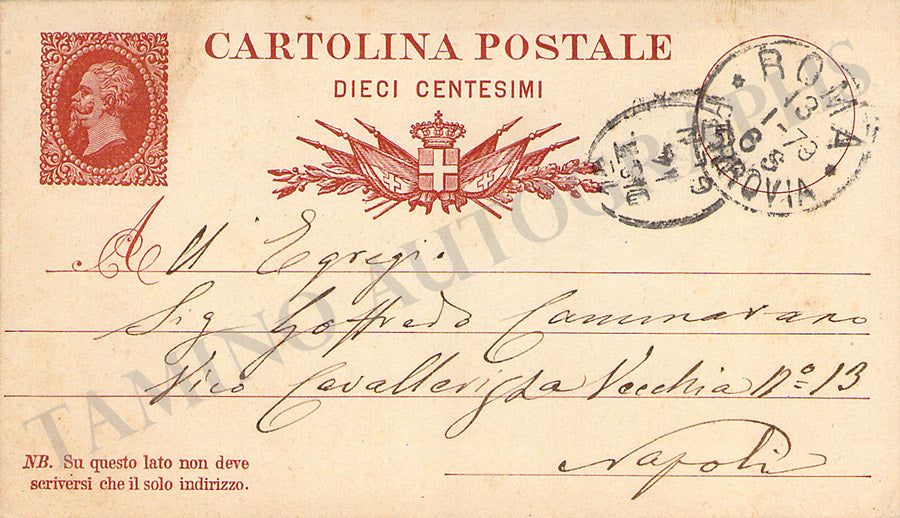 CARTOLINA POSTALE
DIECI CENTESIMI
ROMA
13 12
FERROVIA
All Egregio
Sig Goffredo Cammarano
Vico Cavallerizza Vecchia No 13
Napoli
NB. Su questo lato non deve
scriversi che il solo indirizzo.
TAMINO AUTOGRAPHS